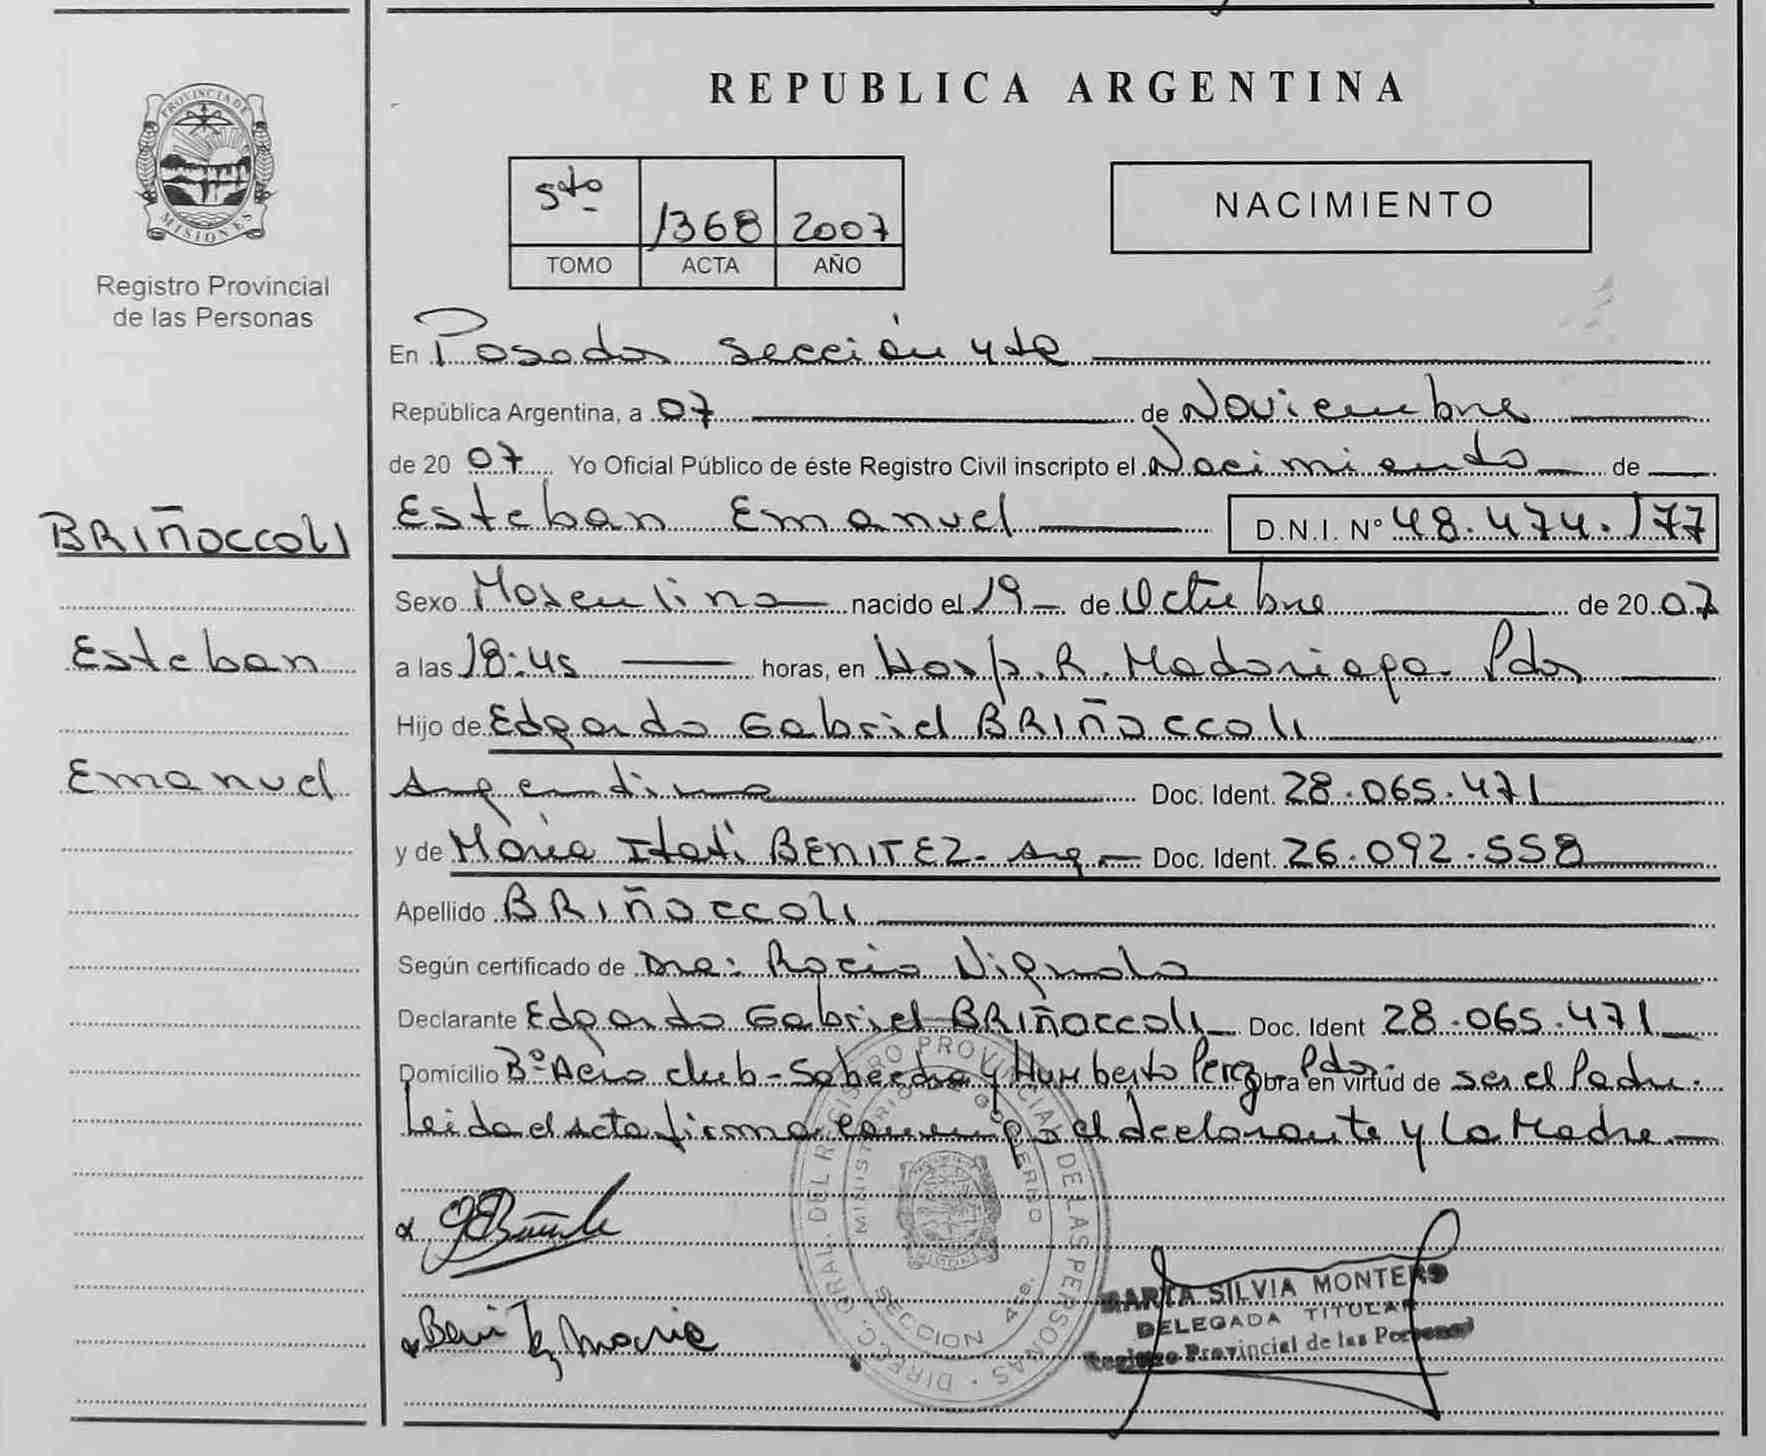 REPUBLICA ARGENTINA
PROVINCIA DE
MISIONES
Registro Provincial
de las Personas
5to 1368 2007
TOMO ACTA AÑO
NACIMIENTO
En Posadas Sección 4ta
República Argentina, a 07 de Noviembre
de 2007 Yo Oficial Público de éste Registro Civil inscripto el Nacimiento de
Esteban Emanuel D.N.I. Nº 48.474.177
BRIÑOCCOLI
Esteban
Emanuel
Sexo Masculino nacido el 19 de Octubre de 2007
a las 18:45 horas, en Hosp. R. Madariaga Pdas
Hijo de Edgardo Gabriel BRIÑOCCOLI
Argentino Doc. Ident. 28.065.471
y de María Itatí BENITEZ - Arg - Doc. Ident. 26.092.558
Apellido BRIÑOCCOLI
Según certificado de Dra: Rocio Vignola
Declarante Edgardo Gabriel BRIÑOCCOLI Doc. Ident 28.065.471
Domicilio Bº Aero club - Saberdra y Humberto Perez - Pdas. Obra en virtud de ser el Padre.
Leida el acta firma conmigo el declarante y La Madre
Benitez Maria
DIREC. GRAL. DEL REGISTRO PROVINCIAL DE LAS PERSONAS
MINISTERIO DE GOBIERNO
SECCION 4ta.
MARTA SILVIA MONTERO
DELEGADA TITULAR
Registro Provincial de las Personas